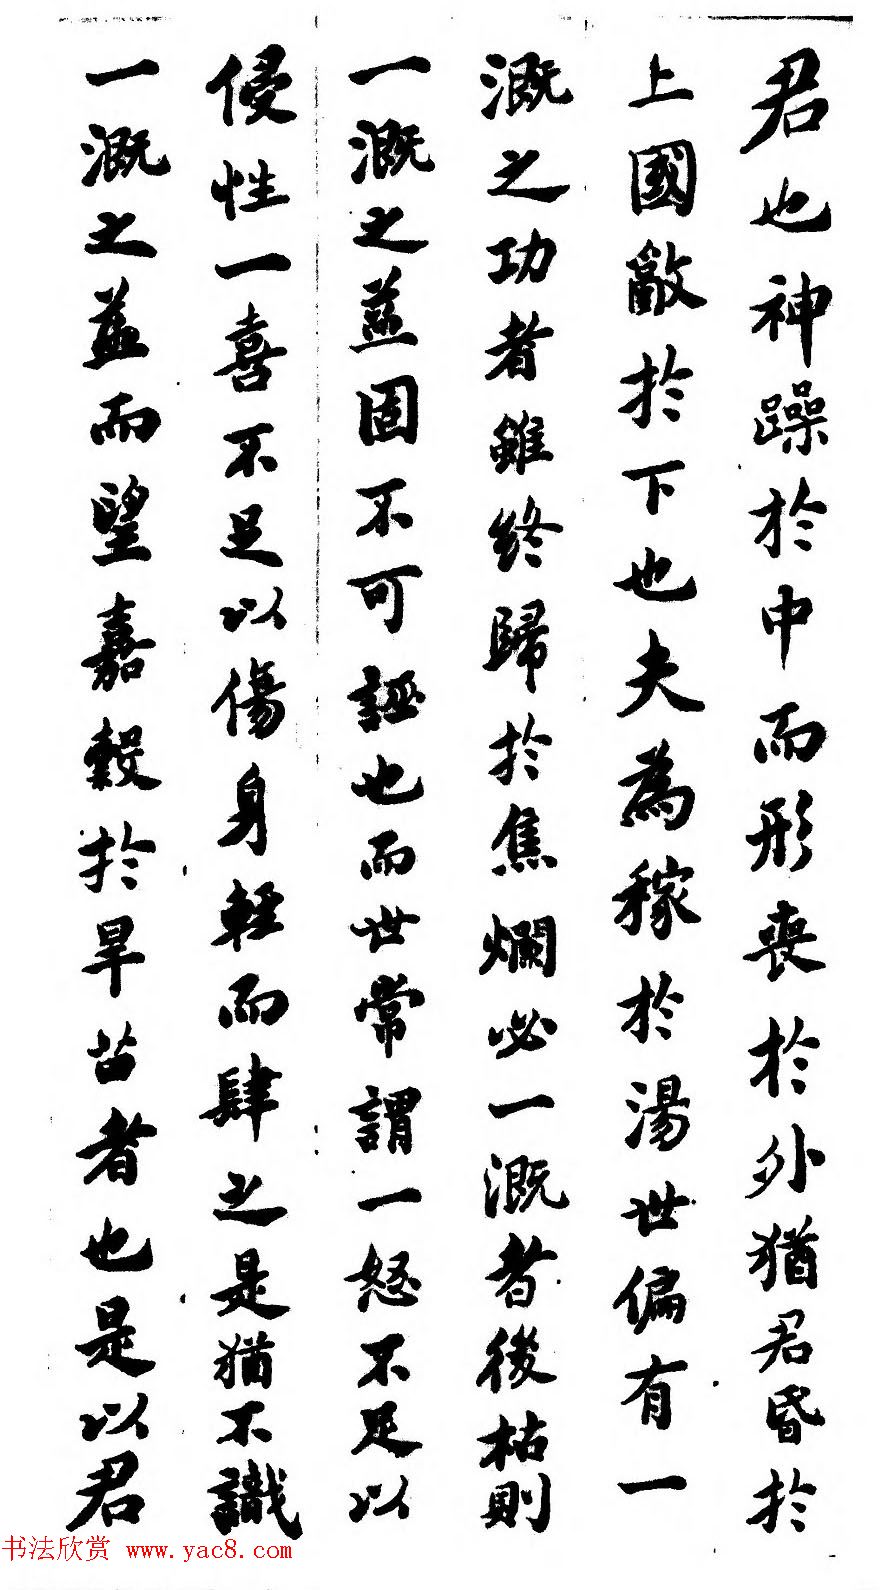 君也神躁於中而形喪於外猶君昏於
上國亂於下也夫為稼於湯世偏有一
溉之功者雖終歸於焦爛必一溉者後枯則
一溉之益固不可誣也而世常謂一怒不足以
侵性一喜不足以傷身輕而肆之是猶不識
一溉之益而望嘉穀於旱苗者也是以君
书法欣赏 www.yac8.com